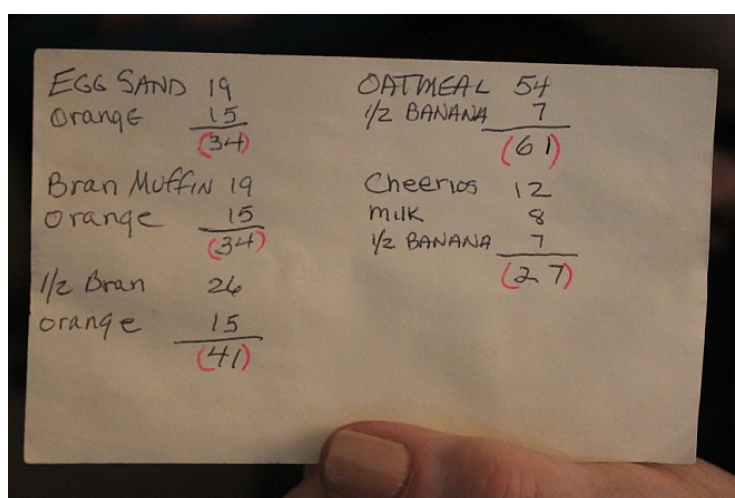 EGG SAND 19
orange 15
(34)
Bran Muffin 19
orange 15
(34)
1/2 Bran 26
orange 15
(41)
OATMEAL 54
1/2 BANANA 7
(61)
Cheerios 12
milk 8
1/2 BANANA 7
(27)